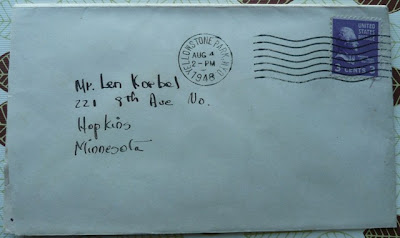 YELLOWSTONE PARK, WYO.
AUG 4
2-PM
1948
UNITED
STATES
POSTAGE
3 CENTS 3
Mr. Len Korbel
221 9th Ave No.
Hopkins
Minnesota